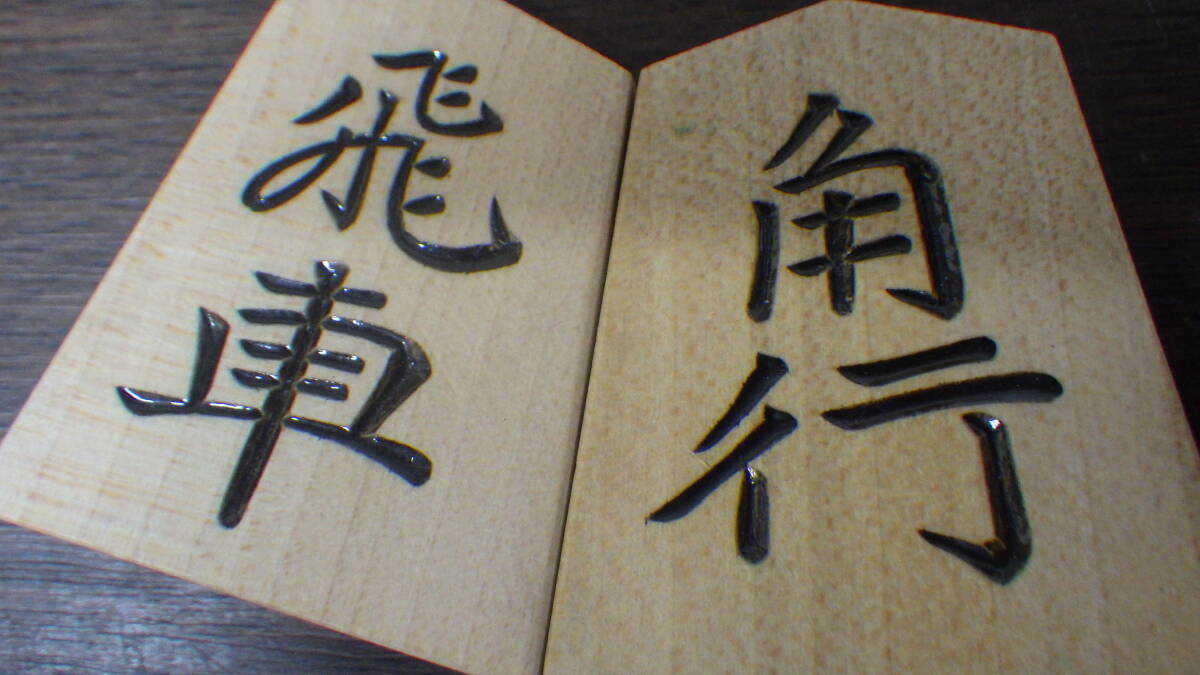 飛車
角行